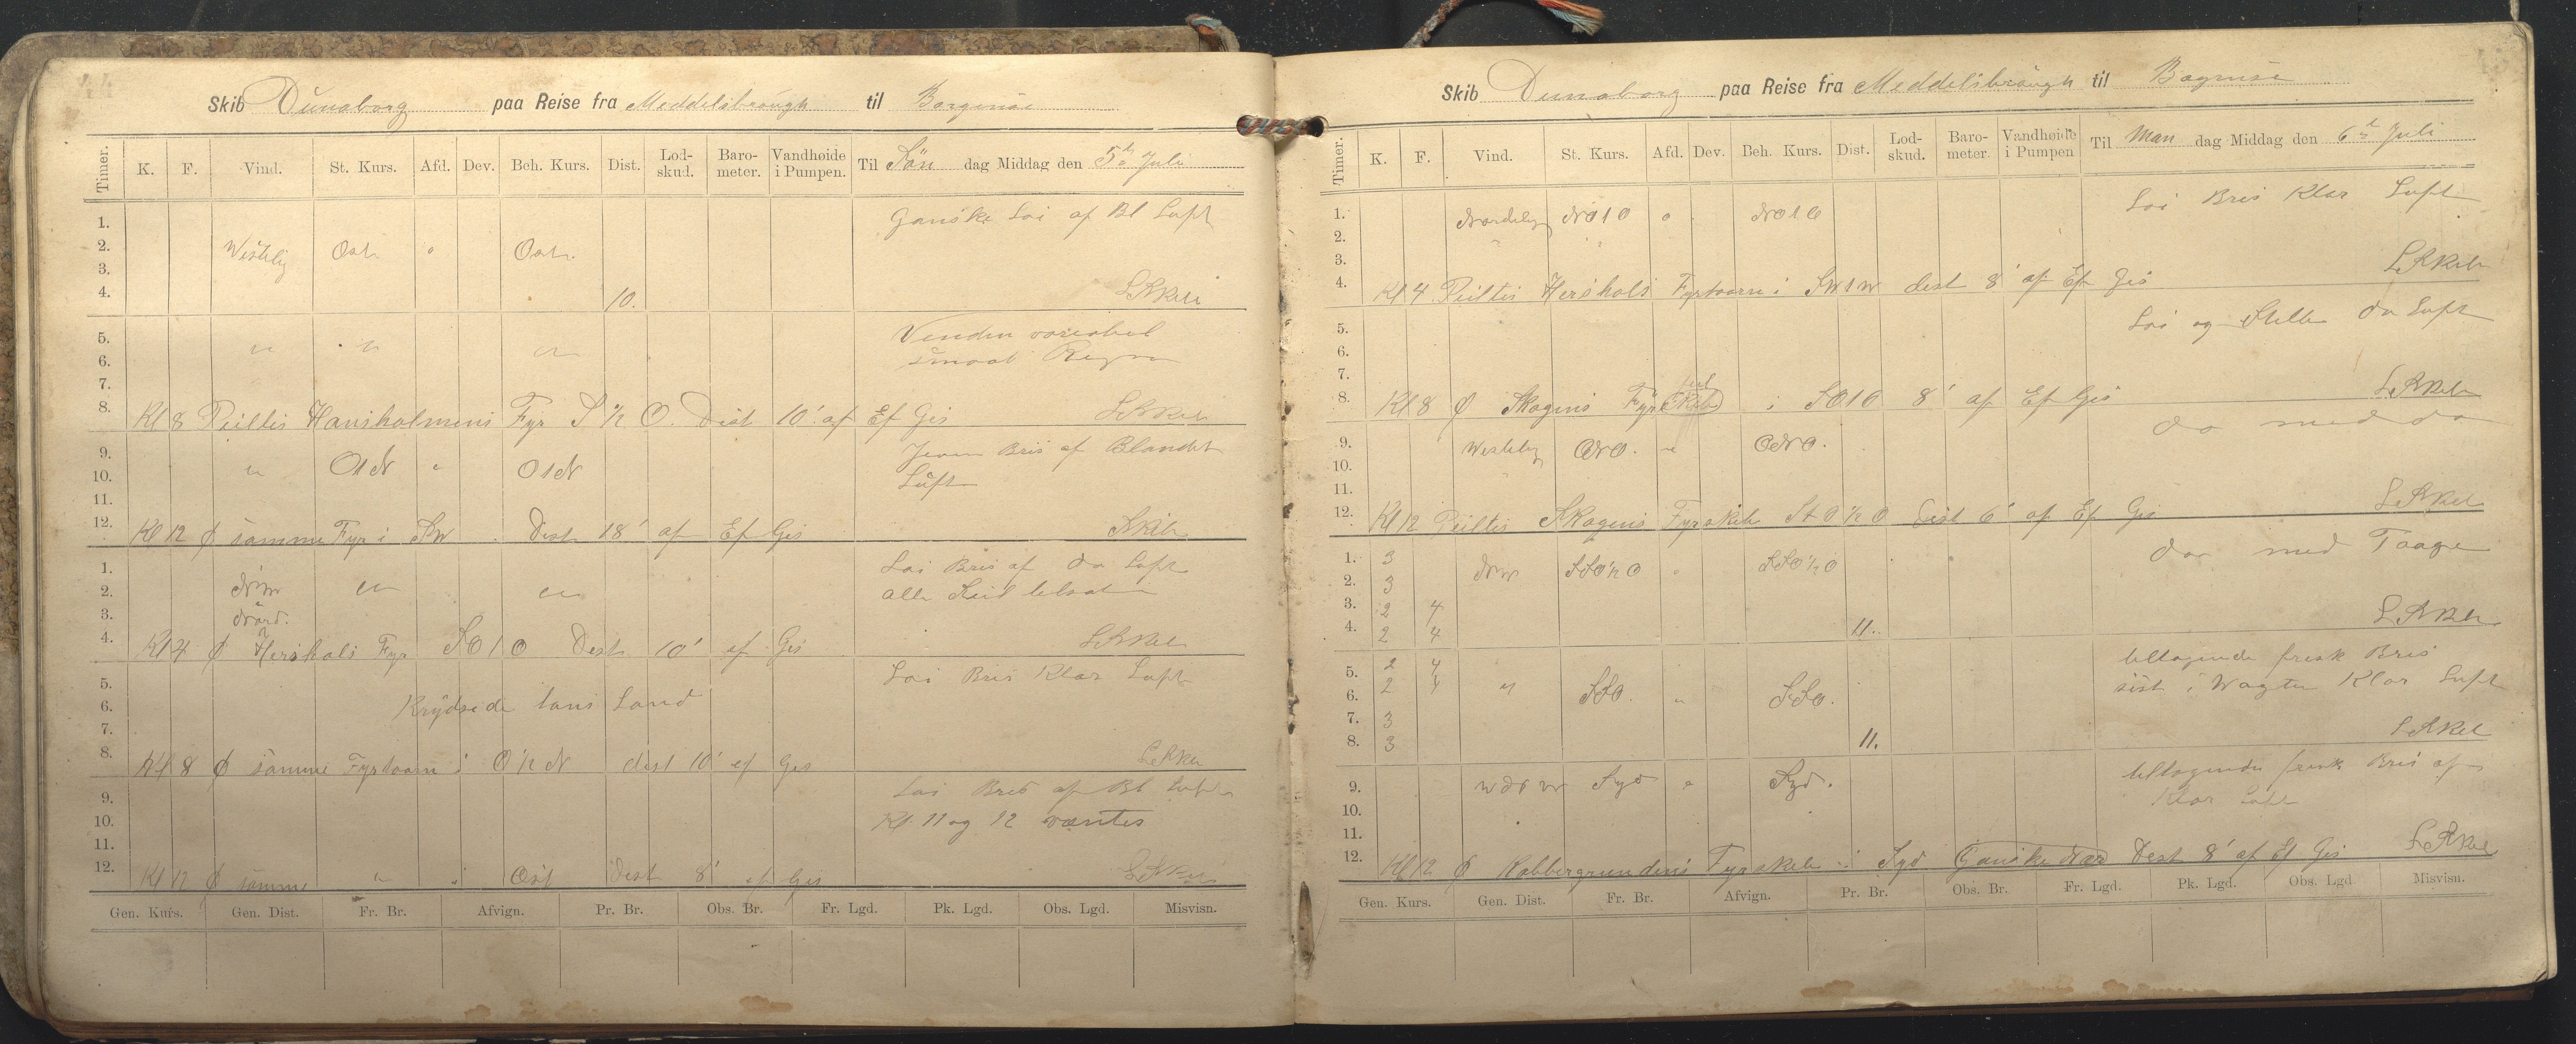 Skib Dunaborg paa Reise fra Meddelsbraugh til Borgenæs
Timer. K. F. Vind. St. Kurs. Afd. Dev. Beh. Kurs. Dist. Lod-skud. Baro-meter. Vandhøide i Pumpen. Til Søn dag Middag den 5te Juli
1. Ganske Lai af Bl Luft
2. Vestelig Ost " Ost
3.
4. 10.
5. " " " Venden variabel
6. smaat Regn
7.
8. Kl 8 Peiltes Hansholmens Fyr S ½ O. Dist 10' af Ef Gis
9. " O1N " O1N Jevn Bris af Blandet
10. Luft
11.
12. Kl 12 φ samme Fyr i SW Dist 18' af Ef Gis
1. Lai Bris af do Luft
2. NW " " alle Seil tilsat
3. Nord.
4. Kl 4 φ Hershals Fyr SO1O Dist 10' ef Gis
5. Lai Bris Klar Luft
6. Krydsede lans Land
7.
8. Kl 8 φ samme Fyrtaarn i O½N dist 10' ef Gis
9. Lai Bris af Bl Luft
10. Kl. 11 og 12 væntes
11.
12. Kl 12 φ samme " i Ost Dist 8' ef Gis
Gen. Kurs. Gen. Dist. Fr. Br. Afvign. Pr. Br. Obs. Br. Fr. Lgd. Pk. Lgd. Obs. Lgd. Misvisn.
Skib Dunaborg paa Reise fra Meddelsbraugh til Bogenæs
Timer. K. F. Vind. St. Kurs. Afd. Dev. Beh. Kurs. Dist. Lod-skud. Baro-meter. Vandhøide i Pumpen Til Man dag Middag den 6te Juli
1. Nordelig NO1O " NO1O Lai Bris Klar Luft
2.
3.
4. Kl 4 Peiltes Hershals Fyrtaarn i SW1W dist 8' af Ef Gis
5. Lai og Stille do Luft
6.
7.
8. Kl 8 φ Skagens Fyr i SO1O 8' af Ef Gis
9. Westelig ONO. " ONO. do med do
10.
11.
12. Kl 12 Peiltes Skagens Fyrskib StO½O Dist 6' af Ef Gis
1. 3 NW SSO½O " SSO½O do med Taage
2. 3
3. 2 4
4. 2 4 11.
5. 2 4 tiltagende frisk Bris
6. 2 4 " SSO. " SSO. sist i Wagten Klar Luft
7. 3
8. 3 11.
9. WNW Syd " Syd. tiltagende frisk Bris af
10. Klar Luft
11.
12. Kl 12 φ Kobbergrundens Fyrskib i Syd Ganske Nær Dist 8' af Ef Gis
Gen. Kurs. Gen. Dist. Fr. Br. Afvign. Pr. Br. Obs. Br. Fr. Lgd. Pk. Lgd. Obs. Lgd. Misvisn.